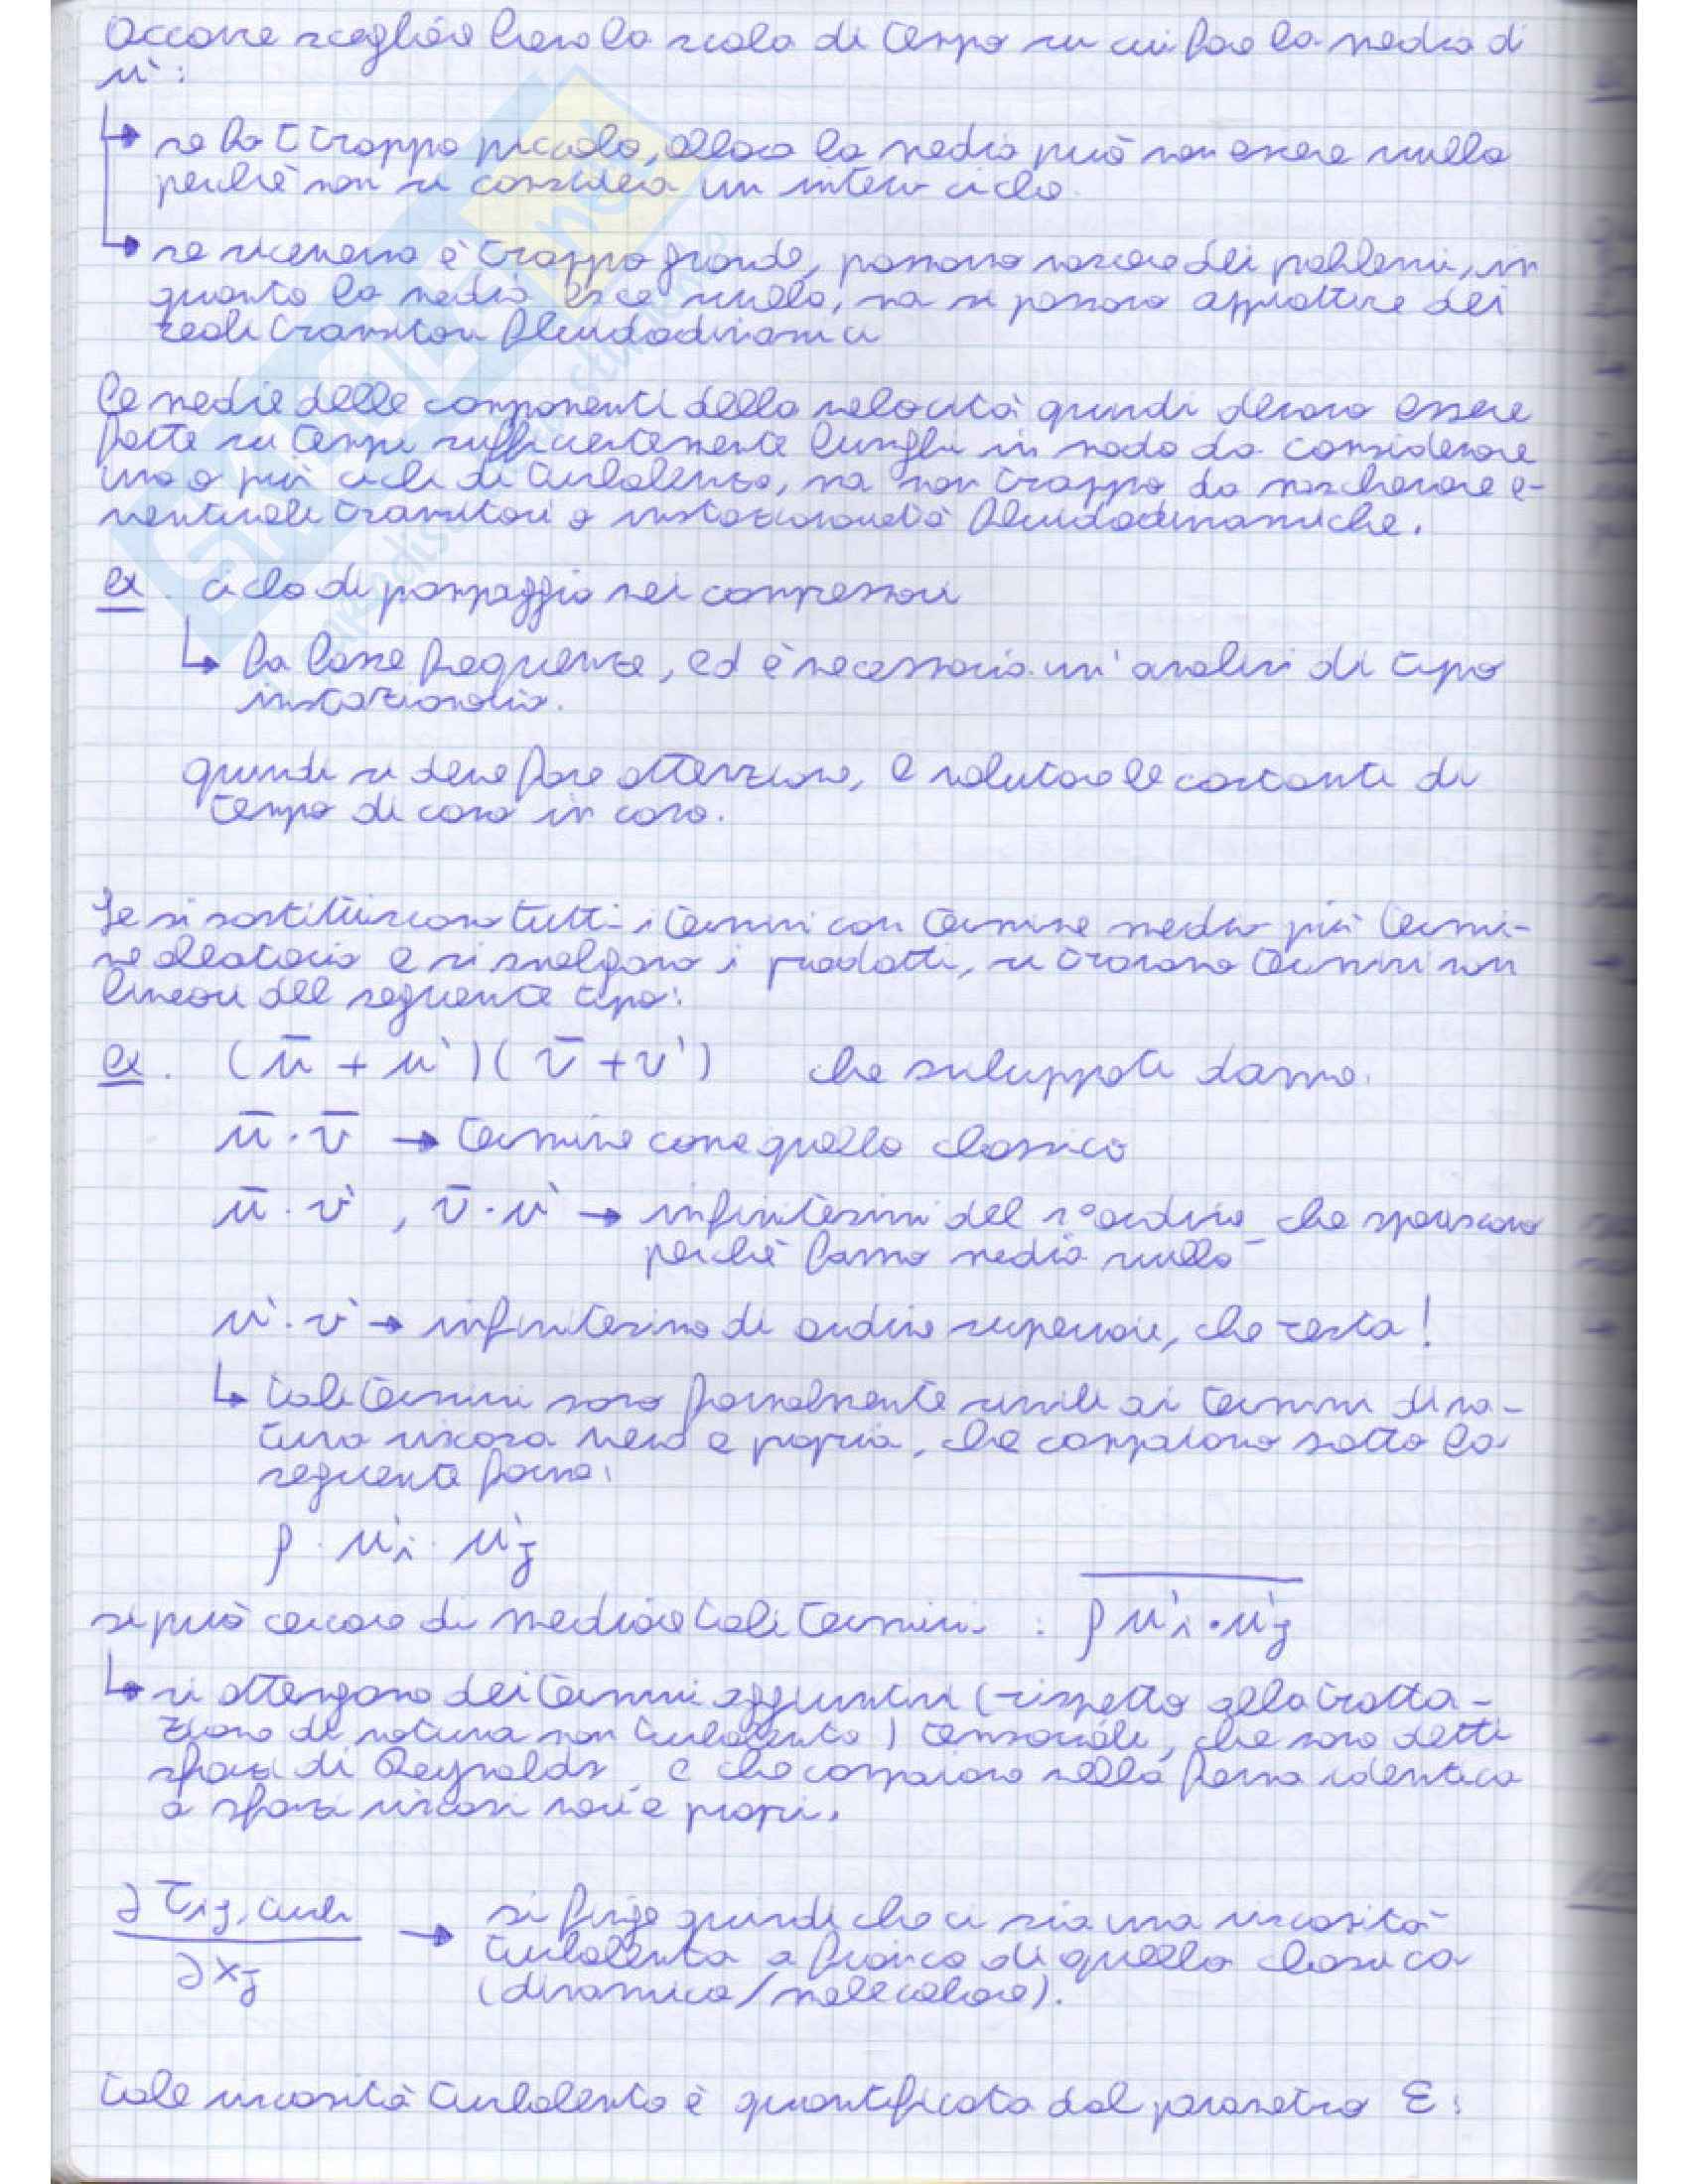 Occorre scegliere bene la scala di tempo su cui fare la media di
u':
↳ se ho t troppo piccolo, allora la media può non essere nulla
perchè non si considera un intero ciclo.
↳ se viceversa è troppo grande, possono nascere dei problemi, in
quanto la media esce nulla, ma si possono appiattire dei
reali transitori fluidodinamici
Le medie delle componenti della velocità quindi devono essere
fatte su tempi sufficientemente lunghi in modo da considerare
uno o più cicli di turbolenza, ma non troppo da mascherare e-
ventuali transitori o instazionarietà fluidodinamiche.
ex. ciclo di pompaggio nei compressori
↳ ha basse frequenze, ed è necessaria un'analisi di tipo
instazionario.
quindi si deve fare attenzione, e valutare le costanti di
tempo di caso in caso.
Se si sostituiscono tutti i termini con termine medio più termi-
ne aleatorio e si svolgono i prodotti, si trovano termini non
lineari del seguente tipo:
ex. (ū + u')(v̄ + v') che sviluppati danno:
ū · v̄ → termine come quello classico
ū · v' , v̄ · u' → infinitesimi del 1° ordine che spariscono
perchè hanno media nulla
u' · v' → infinitesimo di ordine superiore, che resta!
↳ tali termini sono formalmente simili ai termini di na-
tura viscosa vera e propria, che compaiono sotto la
seguente forma:
ρ · u'i · u'j
si può cercare di mediare tali termini : ρ u'i · u'j
↳ si ottengono dei termini aggiuntivi (rispetto alla tratta-
zione di natura non turbolenta) tensoriali, che sono detti
sforzi di Reynolds e che compaiono nella forma identica
a sforzi viscosi veri e propri.
∂τij,turb
∂xj
→ si finge quindi che ci sia una viscosità
turbolenta a fianco di quella classica
(dinamica/molecolare).
tale viscosità turbolenta è quantificata dal parametro ε:
SKUOLA.net